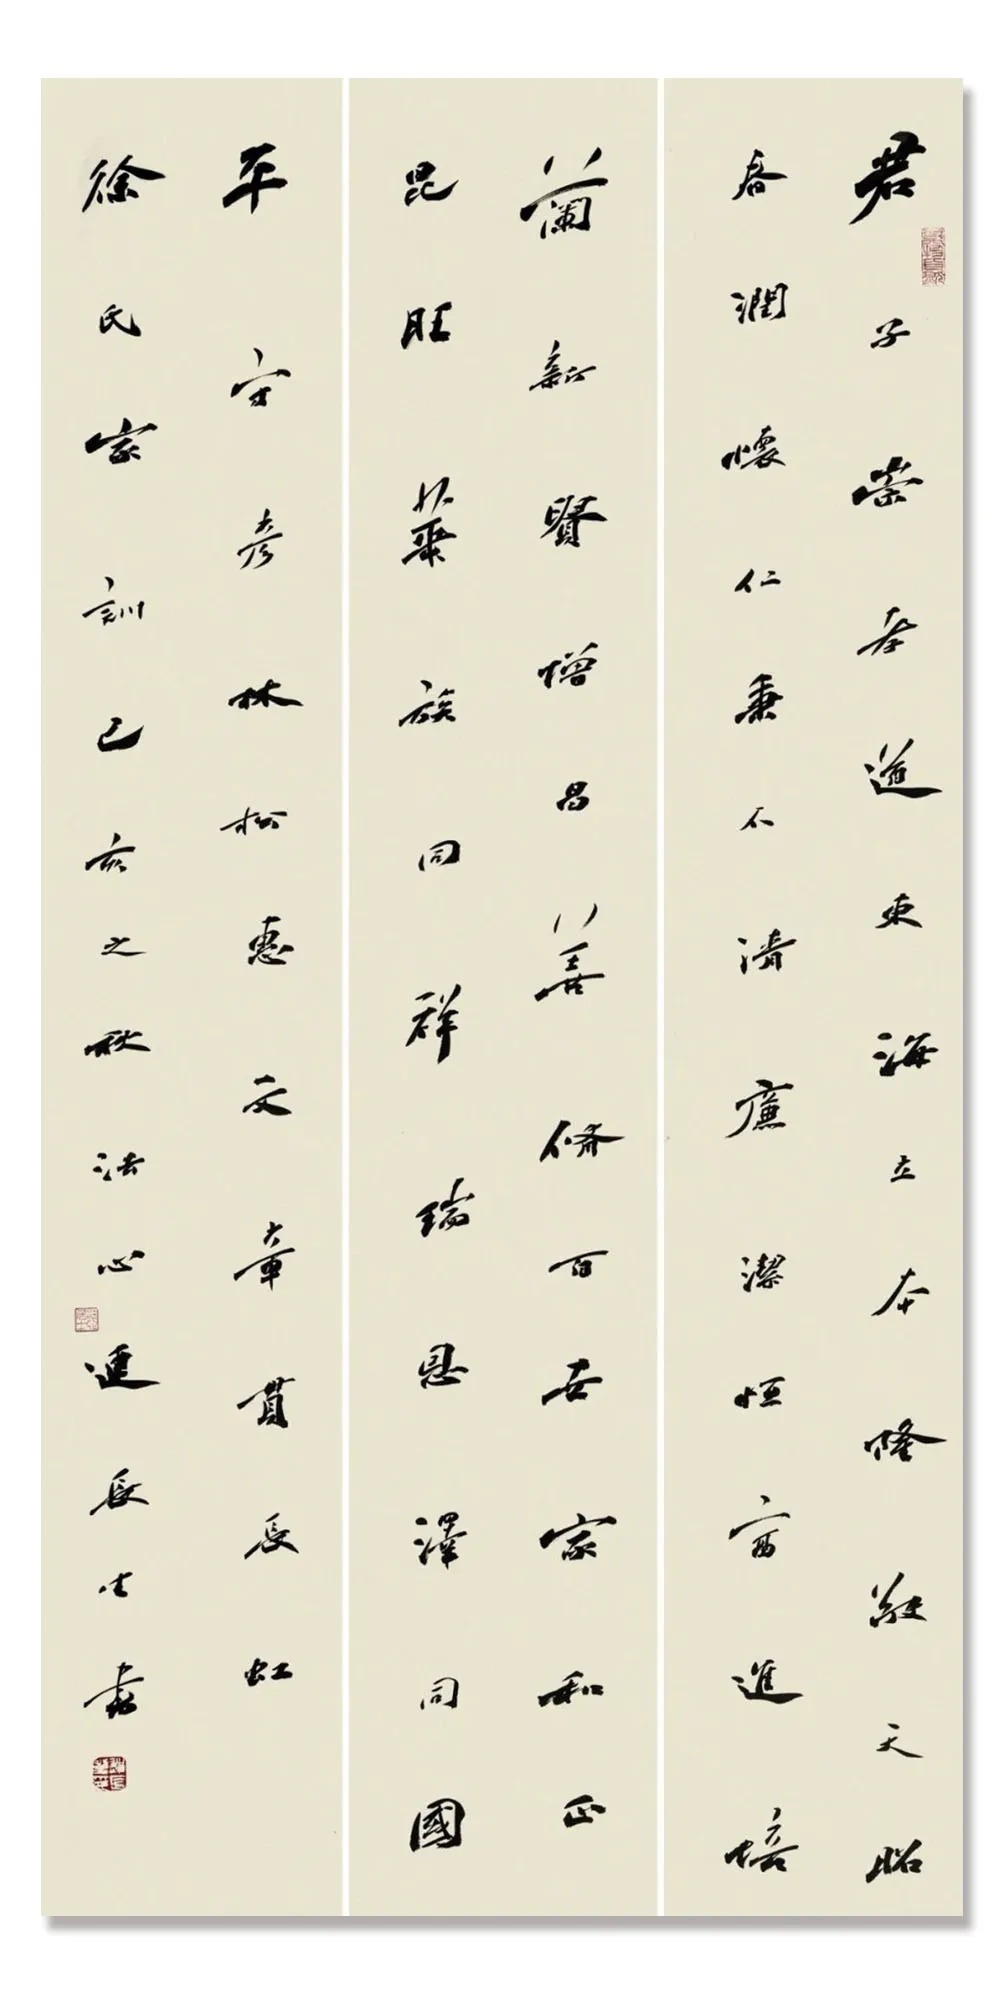 君子崇孝道東海立本隆敬天昭
春潤懷仁秉不清廉潔恒進培
蘭新賢增昌善脩百世家和正
昆旺華族同祥瑞恩澤同國
平守彥林松惠文章貫長虹
徐氏家訓己亥之秋法心連長生書